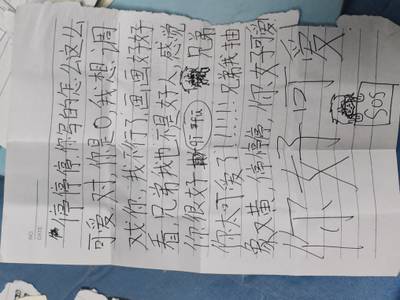 NO.
DATE
停停停,你写的怎么这么
可爱,对你是0我想调
戏你,我不行了画画好好
看,兄弟我也不是好人感觉
你很好 兄弟
你太可爱了!!!!!兄弟我抽
象又黄,停停停,你好可爱
你好可爱
SOS